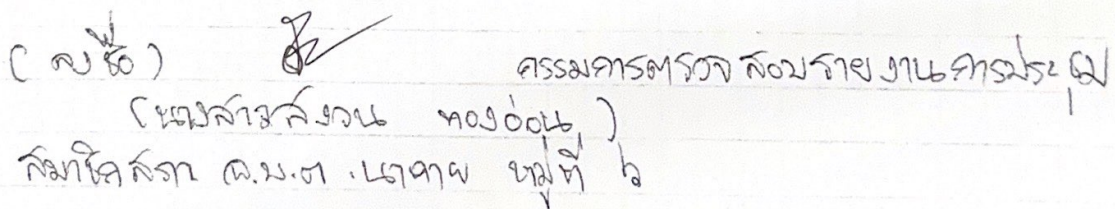 (ลงชื่อ) กรรมการตรวจสอบรายงานการประชุม
(นางสาวสงวน ทองอ่อน)
สมาชิกสภา อ.บ.ต.นาคาย หมู่ที่ ๖